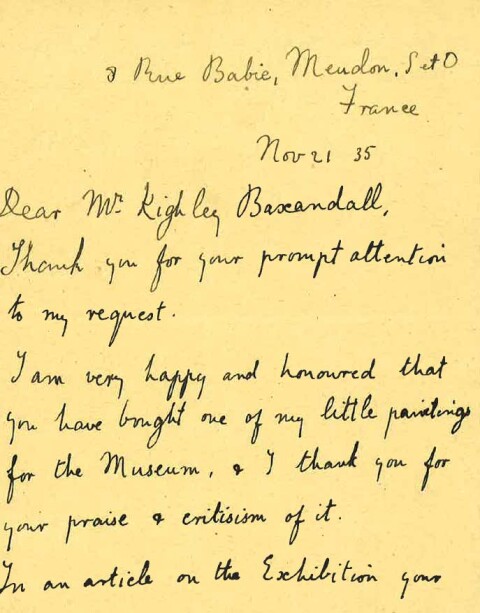 8 Rue Babie, Meudon. S et O
France
Nov 21 35
Dear Mr. Kighley Baxandall,
Thank you for your prompt attention
to my request.
I am very happy and honoured that
you have bought one of my little paintings
for the Museum, & I thank you for
your praise & critisism of it.
In an article on the Exhibition your